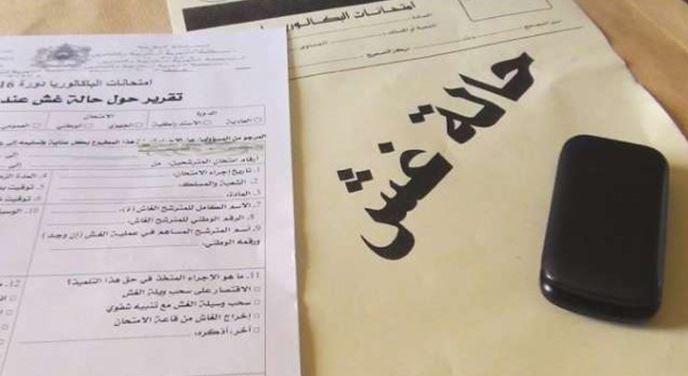 امتحانات الباكالوريا دورة 16
تقرير حول حالة غش عند
الدورة
الامتحان
العادية
الاستدراكية
الجهوي
الوطني
العمومي
هذا المطبوع بكل عناية وتسليمه إلى
أرقام امتحان المترشحين: من
إلى
1. تاريخ إجراء الامتحان:
2. الشعبة والمسلك:
3. المادة:
4. المدة
5. توقيت
6. توقيت
7. الاسم الكامل للمترشح الغاش (ة):
8. الرقم الوطني للمترشح الغاش:
9. اسم المترشح المساهم في عملية الغش (إن وجد)
ورقمه الوطني:
10. الوسيلة
11. ما هو الإجراء المتخذ في حق هذا التلميذ؟
الاقتصار على سحب وسيلة الغش
سحب وسيلة الغش مع تنبيه شفوي
إخراج الغاش من قاعة الامتحان
آخر، أذكره:
12.
امتحانات البكالوريا
حالة غش